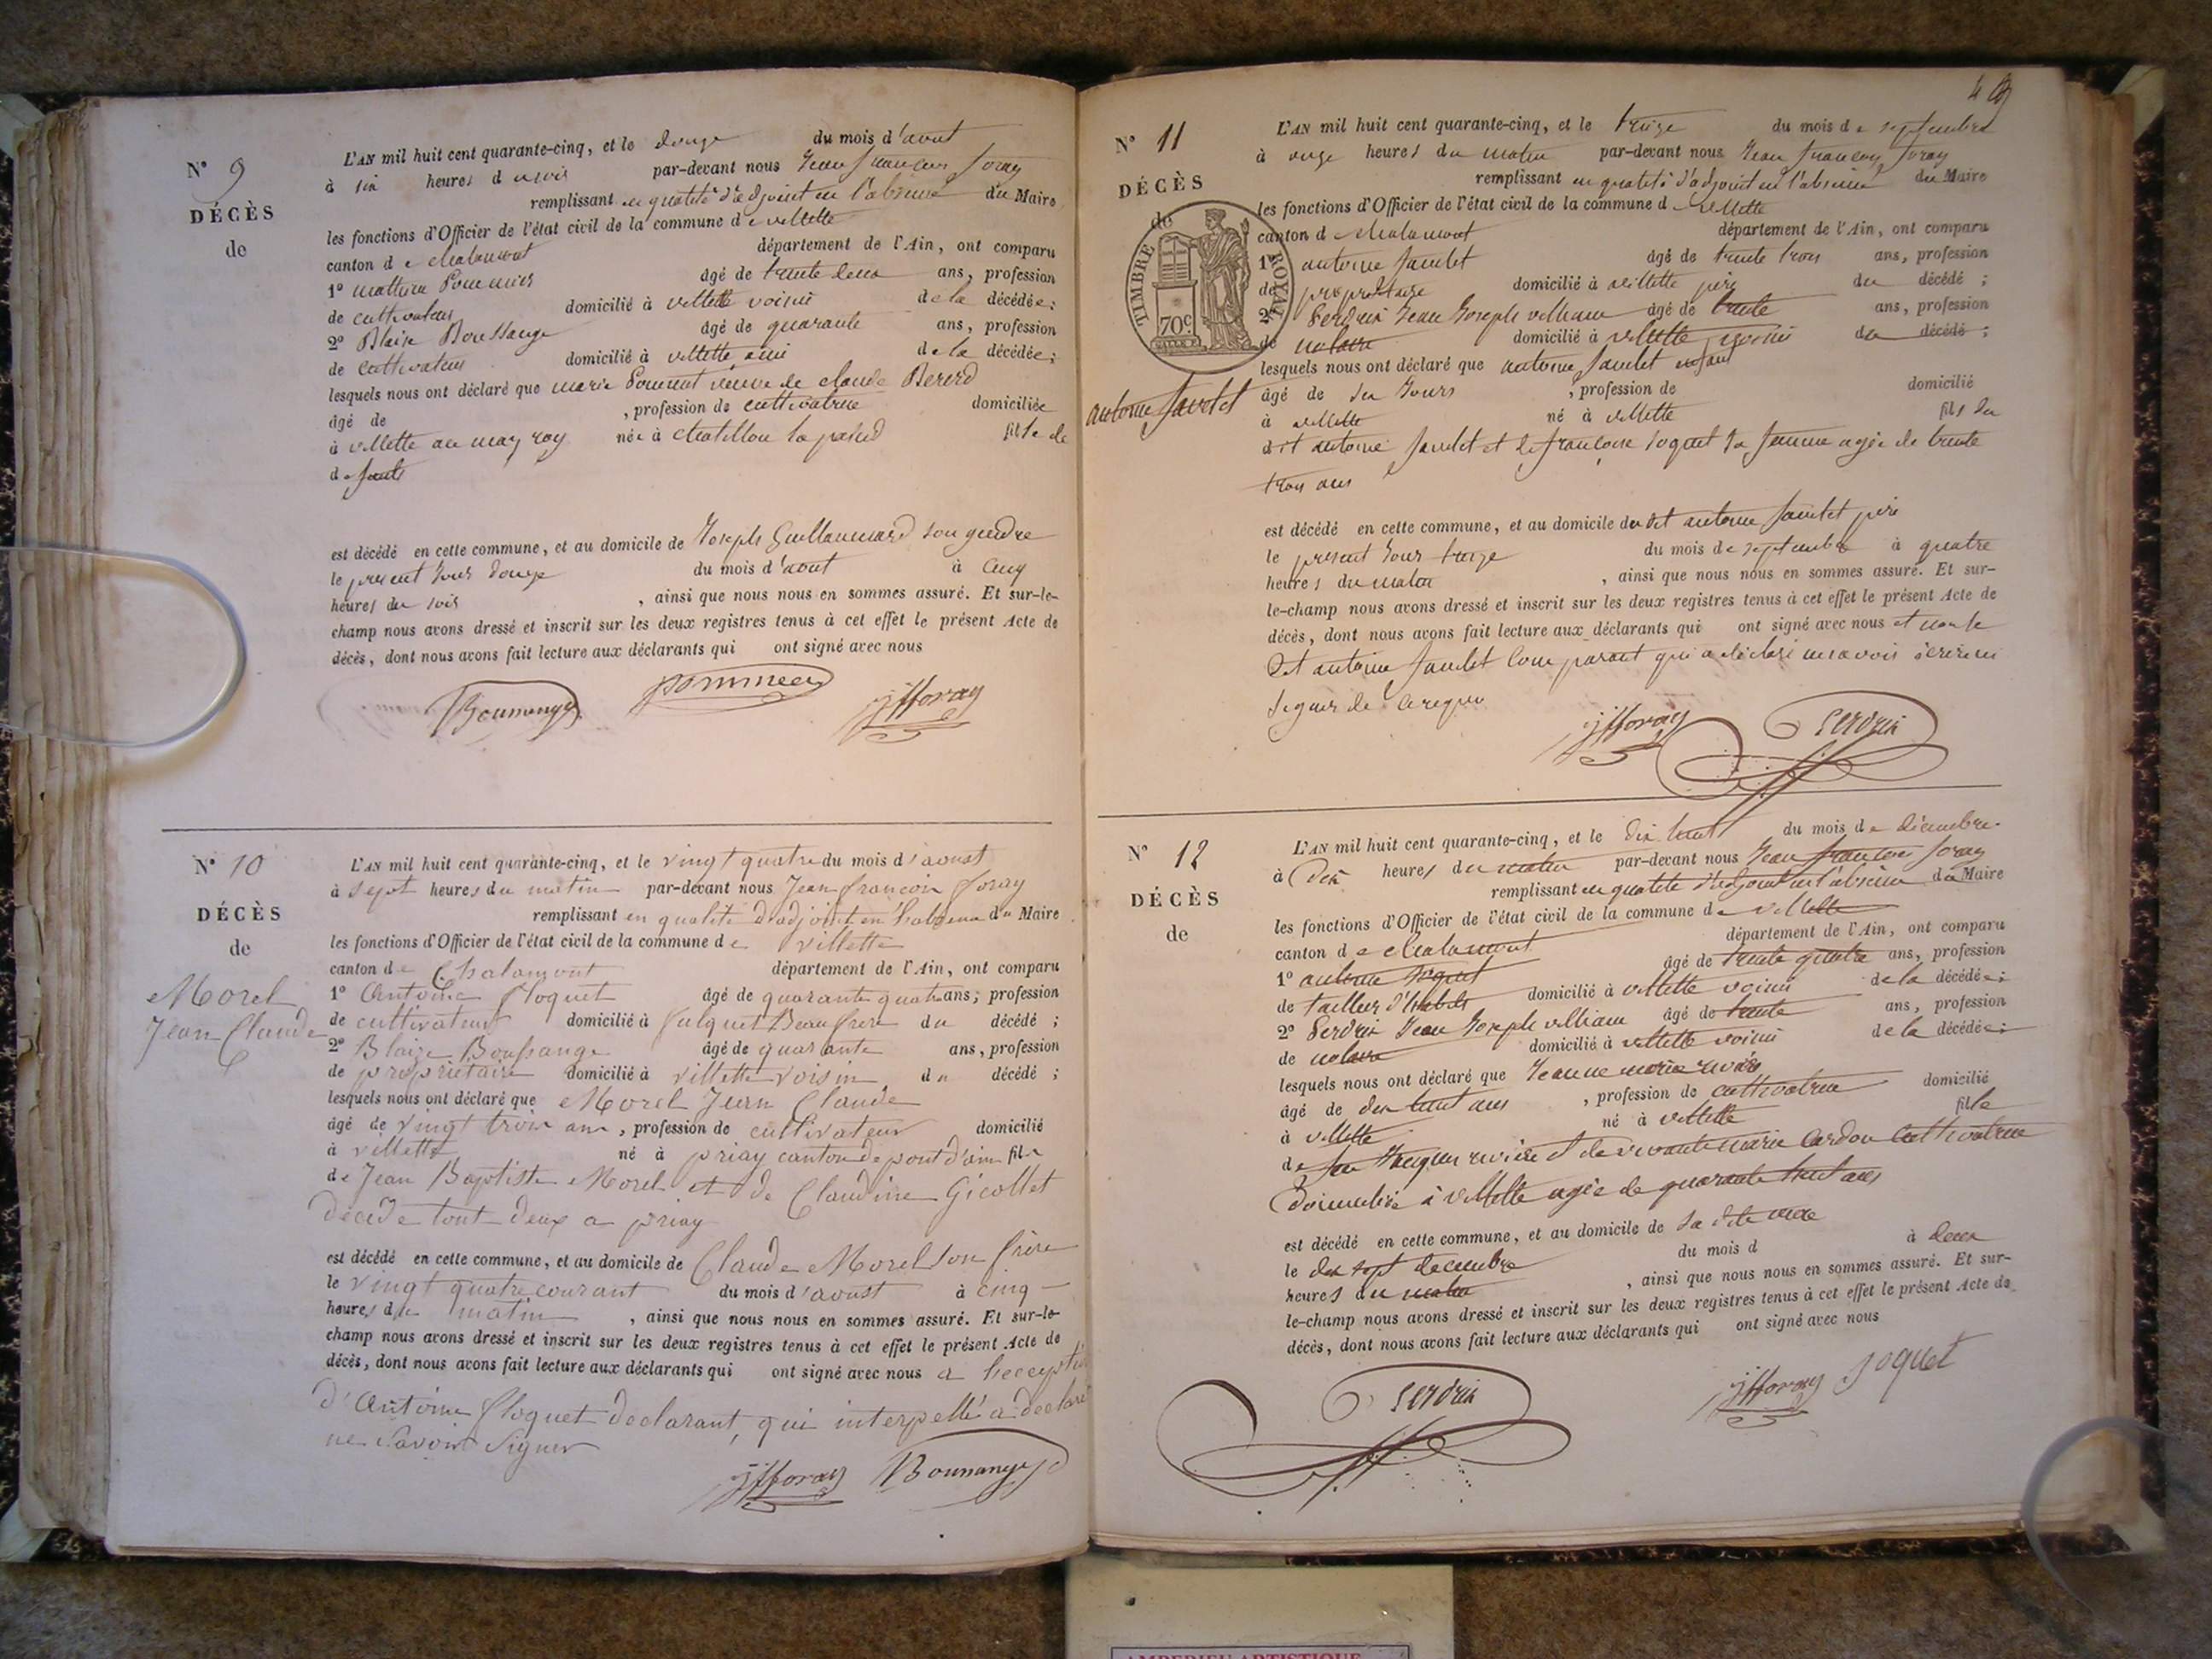 N° 9
DÉCÈS
de
L'AN mil huit cent quarante-cinq, et le douze du mois d'aout
à six heures du soir par-devant nous Jean francois foray
remplissant en qualité d'adjoint en l'absence du Maire
les fonctions d'Officier de l'état civil de la commune de villette
canton de chalamont département de l'Ain, ont comparu
1° mathieu Pommier âgé de trente deux ans, profession
de cultivateur domicilié à villette voisin de la décédée;
2° Blaise Boussange âgé de quarante ans, profession
de cultivateur domicilié à villette ami de la décédée;
lesquels nous ont déclaré que marie veuve de claude Bererd
âgé de , profession de cultivatrice domiciliée
à villette au may roy née à chatillon la palud fille de
défunts
est décédé en cette commune, et au domicile de Joseph Guillaumard son gendre
le present jour douze du mois d'aout à cinq
heures du soir , ainsi que nous nous en sommes assuré. Et sur-le-
champ nous avons dressé et inscrit sur les deux registres tenus à cet effet le présent Acte de
décès, dont nous avons fait lecture aux déclarants qui ont signé avec nous
Boussange pommier jfforay
N° 10
DÉCÈS
de
Morel
Jean Claude
L'AN mil huit cent quarante-cinq, et le vingt quatre du mois d'aoust
à sept heures du matin par-devant nous Jean francois foray
remplissant en qualité d'adjoint en l'absence du Maire
les fonctions d'Officier de l'état civil de la commune de villette
canton de Chalamont département de l'Ain, ont comparu
1° Antoine floquet âgé de quarante quatre ans; profession
de cultivateur domicilié à Beaufrere du décédé;
2° Blaize Boussange âgé de quarante ans, profession
de propriétaire domicilié à villette voisin du décédé;
lesquels nous ont déclaré que Morel Jean Claude
âgé de vingt trois ans, profession de cultivateur domicilié
à villette né à priay canton de pont d'ain fils
de Jean Baptiste Morel et de Claudine Gicollet
décédé tout deux a priay
est décédé en cette commune, et au domicile de Claude Morel son frère
le vingt quatre courant du mois d'aoust à cinq
heures du matin , ainsi que nous nous en sommes assuré. Et sur-le-
champ nous avons dressé et inscrit sur les deux registres tenus à cet effet le présent Acte de
décès, dont nous avons fait lecture aux déclarants qui ont signé avec nous a l'exception
d'Antoine floquet declarant, qui interpellé a declaré
ne savoir signer
jfforay Boussange
N° 11
DÉCÈS
de
TIMBRE ROYAL
70c
antoine Jaudet
L'AN mil huit cent quarante-cinq, et le treize du mois de septembre
à onze heures du matin par-devant nous Jean francois foray
remplissant en qualité d'adjoint en l'absence du Maire
les fonctions d'Officier de l'état civil de la commune de villette
canton de chalamont département de l'Ain, ont comparu
1° antoine Jaudet âgé de trente trois ans, profession
de propriétaire domicilié à villette père du décédé;
2° Serdrix Jean Joseph âgé de trente ans, profession
de notaire domicilié à villette voisin du décédé;
lesquels nous ont déclaré que antoine Jaudet enfant
âgé de dix jours , profession de domicilié
à villette né à villette fils du
dit antoine Jaudet et de francoise soquet sa femme agée de trente
trois ans
est décédé en cette commune, et au domicile du dit antoine Jaudet père
le present jour treize du mois de septembre à quatre
heures du matin , ainsi que nous nous en sommes assuré. Et sur-
le-champ nous avons dressé et inscrit sur les deux registres tenus à cet effet le présent Acte de
décès, dont nous avons fait lecture aux déclarants qui ont signé avec nous et non le
dit antoine Jaudet comparant qui a déclaré ne savoir écrire ni
signer de ce requis
jfforay Serdrix
N° 12
DÉCÈS
de
L'AN mil huit cent quarante-cinq, et le dix huit du mois de décembre
à dix heures du matin par-devant nous Jean francois foray
remplissant en qualité d'adjoint en l'absence du Maire
les fonctions d'Officier de l'état civil de la commune de villette
canton de chalamont département de l'Ain, ont comparu
1° antoine soquet âgé de trente quatre ans, profession
de tailleur d'habits domicilié à villette voisin de la décédée;
2° Serdrix Jean Joseph âgé de trente ans, profession
de notaire domicilié à villette voisin de la décédée;
lesquels nous ont déclaré que Jeanne marie rivière
âgé de dix huit ans , profession de cultivatrice domicilié
à villette né à villette fille
de feu Jacques rivière et de vivante marie Cardon cultivatrice
domiciliée à villette agée de quarante huit ans
est décédé en cette commune, et au domicile de sa dite mère
le dix sept decembre du mois d à deux
heures du matin , ainsi que nous nous en sommes assuré. Et sur-
le-champ nous avons dressé et inscrit sur les deux registres tenus à cet effet le présent Acte de
décès, dont nous avons fait lecture aux déclarants qui ont signé avec nous
Serdrix jfforay soquet